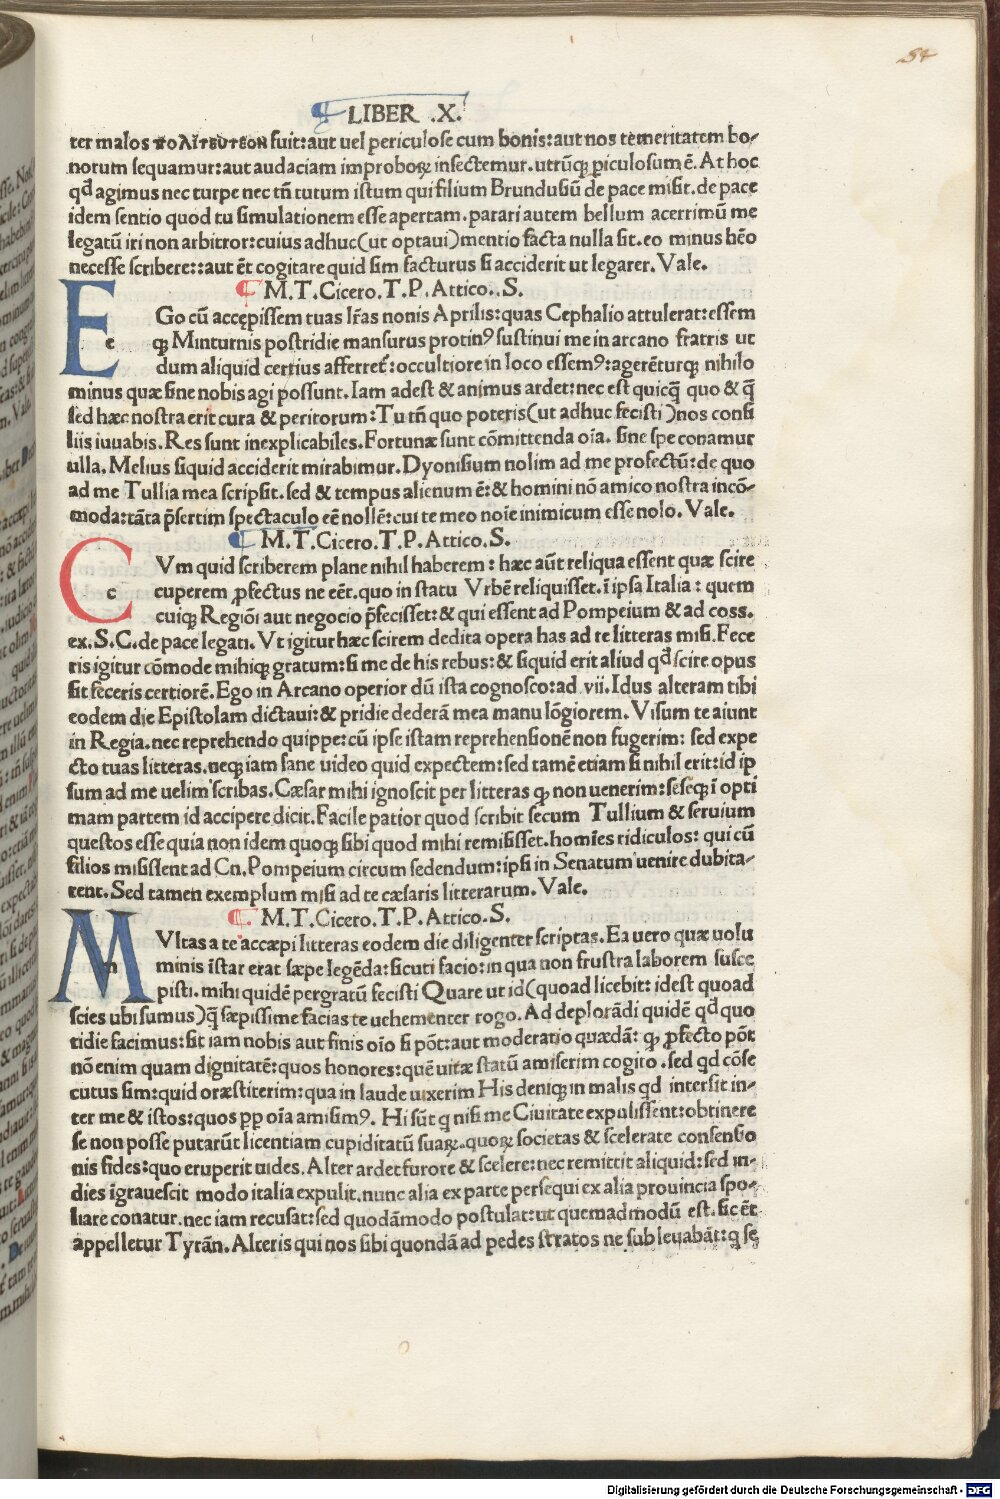 54
¶ LIBER .X.
ter malos πολιτευτεον fuit: aut uel periculose cum bonis: aut nos temeritatem bo-
norum sequamur: aut audaciam improboꝝ insectemur. utrūqꝫ piculosum ē. At hoc
qđ agimus nec turpe nec tñ tutum istum qui filium Brundusiū de pace misit. de pace
idem sentio quod tu simulationem esse apertam. parari autem bellum acerrimū me
legatū iri non arbitror: cuius adhuc (ut optaui) mentio facta nulla sit. eo minus hēo
necesse scribere: aut ēt cogitare quid sim facturus si acciderit ut legarer. Vale.
¶ M.T.Cicero.T.P.Attico..S.
EGo cū accępissem tuas lr̃as nonis Aprilis: quas Cephalio attulerat: essem
e qꝫ Minturnis postridie mansurus protinꝰ sustinui me in arcano fratris ut
dum aliquid certius afferret̃: occultiore in loco essemꝰ: agerēturqꝫ nihilo
minus quæ sine nobis agi possunt. Iam adest & animus ardet: nec est quicq̃ quo & q̃
sed hæc nostra erit cura & peritorum: Tu tñ quo poteris (ut adhuc fecisti) nos consi
liis iuuabis. Res sunt inexplicabiles. Fortunæ sunt cōmittenda oīa. sine spe conamur
ulla. Melius siquid acciderit mirabimur. Dyonisium nolim ad me profectū: de quo
ad me Tullia mea scripsit. sed & tempus alienum ē: & homini nō amico nostra incō-
moda: tāta p̄sertim spectaculo eē nollē: cui te meo noīe inimicum esse nolo. Vale.
¶ M.T.Cicero.T.P.Attico.S.
CVm quid scriberem plane nihil haberem: hæc aūt reliqua essent quæ scire
c cuperem ꝓfectus ne eēt. quo in statu Vrbē reliquisset. ī ipsa Italia: quem
cuiqꝫ Regiōi aut negocio p̄fecisset: & qui essent ad Pompeium & ad coss.
ex.S.C.de pace legati. Vt igitur hæc scirem dedita opera has ad te litteras misi. Fece
ris igitur cōmode mihiqꝫ gratum: si me de his rebus: & siquid erit aliud qđ scire opus
sit feceris certiorē. Ego in Arcano operior dū ista cognosco: ad vii. Idus alteram tibi
eodem die Epistolam dictaui: & pridie dederā mea manu lōgiorem. Visum te aiunt
in Regia. nec reprehendo quippe: cū ipse istam reprehensionē non fugerim: sed expe
cto tuas litteras. neqꝫ iam sane uideo quid expectem: sed tamē etiam si nihil erit: id ip
sum ad me uelim scribas. Cæsar mihi ignoscit per litteras qꝫ non uenerim: seseqꝫ ī opti
mam partem id accipere dicit. Facile patior quod scribit secum Tullium & seruium
questos esse quia non idem quoqꝫ sibi quod mihi remisisset. homīes ridiculos: qui cū
filios misissent ad Cn.Pompeium circum sedendum: ipsi in Senatum uenire dubita-
rent. Sed tamen exemplum misi ad te cæsaris litterarum. Vale.
¶ M.T.Cicero.T.P.Attico.S.
MVltas a te accæpi litteras eodem die diligenter scriptas. Ea uero quæ uolu
m minis īstar erat sæpe legēda: sicuti facio: in qua non frustra laborem susce
pisti. mihi quidē pergratū fecisti Quare ut id (quoad licebit: idest quoad
scies ubi sumus) q̃ sæpissime facias te uehementer rogo. Ad deplorādi quidē qđ quo
tidie facimus: sit iam nobis aut finis oīo si pōt: aut moderatio quædā: qꝫ ꝓfecto pōt
nō enim quam dignitatē: quos honores: quē uitæ statū amiserim cogito. sed qđ cōse
cutus sim: quid oræstiterim: qua in laude uixerim His deniqꝫ in malis qđ intersit in-
ter me & istos: quos pp oīa amisimꝰ. Hi sūt q nisi me Ciuitate expulissent: obtinere
se non posse putarūt licentiam cupiditatū suaꝝ. quoꝝ societas & scelerate consensio
nis fides: quo eruperit uides. Alter ardet furore & scelere: nec remittit aliquid: sed in-
dies īgrauescit modo italia expulit. nunc alia ex parte persequi ex alia prouincia spo-
liare conatur. nec iam recusat: sed quodāmodo postulat: ut quemadmodū est. sic ēt
appelletur Tyrān. Alteris qui nos sibi quondā ad pedes stratos ne subleuabāt: q se
Digitalisierung gefördert durch die Deutsche Forschungsgemeinschaft - DFG